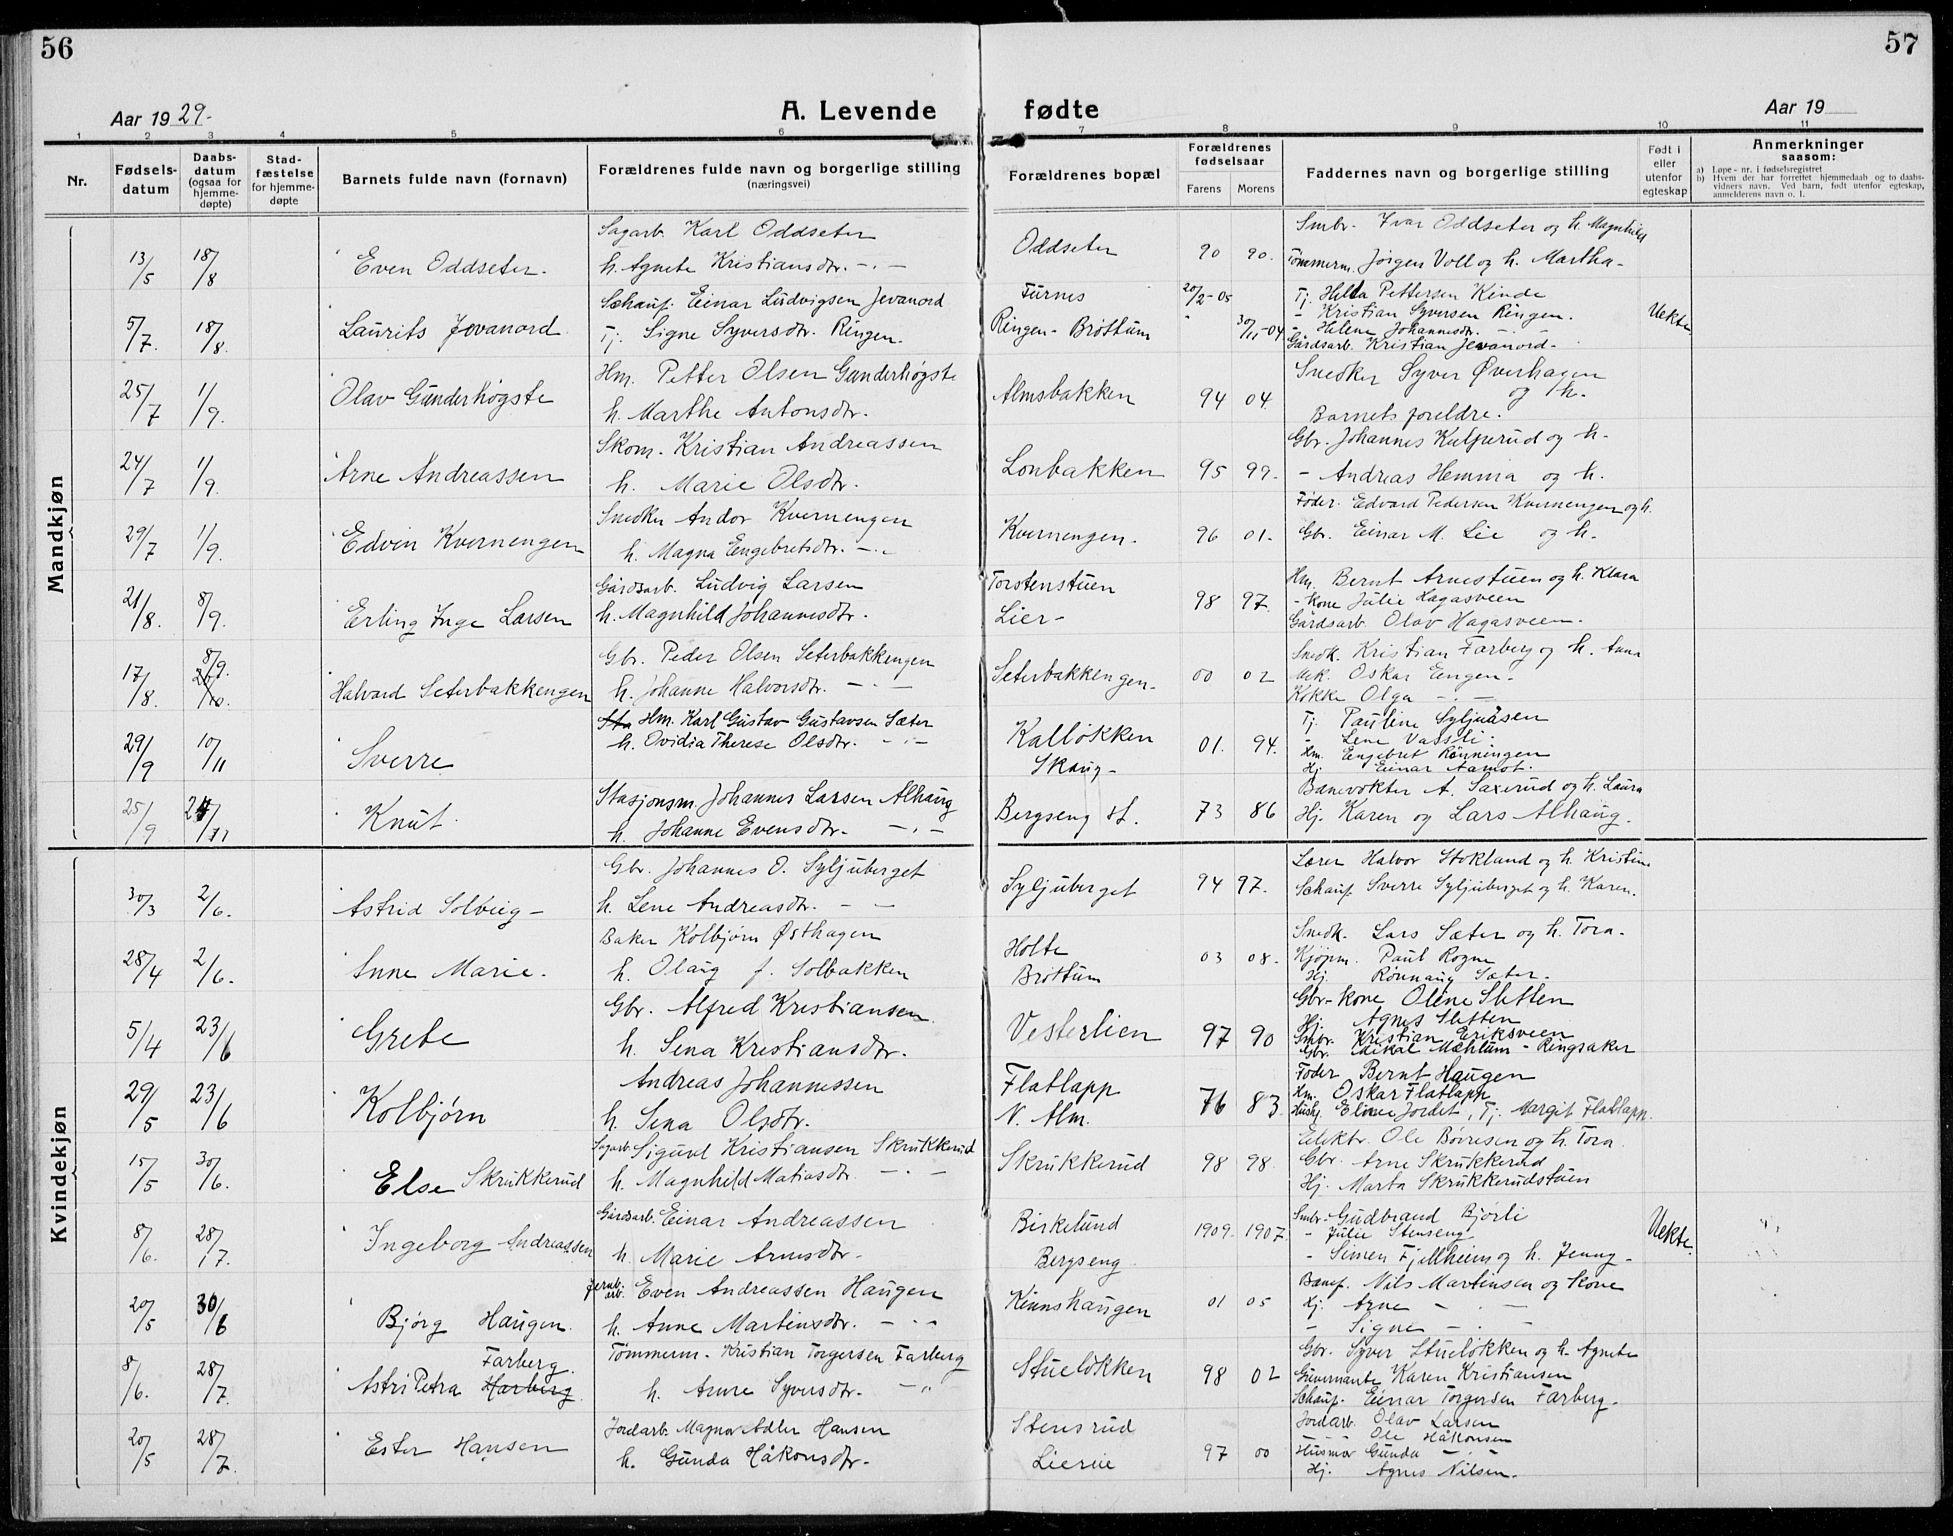 56
57
Aar 1929.
A. Levende fødte
Aar 19
1 2 3 4 5 6 7 8 9 10 11
Nr.
Fødsels-datum
Daabs-datum (ogsaa for hjemme-døpte)
Stad-fæstelse for hjemme-døpte
Barnets fulde navn (fornavn)
Forældrenes fulde navn og borgerlige stilling (næringsvei)
Forældrenes bopæl
Forældrenes fødselsaar
Farens Morens
Faddernes navn og borgerlige stilling
Født i eller utenfor egteskap
Anmerkninger saasom:
a) Løpe-nr. i fødselsregistret
b) Hvem der har forrettet hjemmedaab og to daabs-vidners navn. Ved barn, født utenfor egteskap, anmelderens navn o. l.
Mandkjøn
13/5 18/8 Even Oddseter.
Sagarb. Karl Oddseter
h. Agnete Kristiansdtr. -.-
Oddseter 90 90.
Smbr. Ivar Oddseter og h. Magnhild
Tømmerm. Jørgen Voll og h. Martha-
5/7. 18/8. Laurits Jevanord
Schauf. Einar Ludvigsen Jevanord
Tj. Signe Syversdtr. Ringen.
Furnes 20/2-05
Ringen - Brøttum " 30/11-04
Tj. Hilda Pettersen Kinde
- Kristian Syversen Ringen.
- Helene Johannesdtr. - -
Gårdsarb. Kristian Jevanord-
Uekte
25/7 1/9. Olav Gunderhøgste
Hm. Petter Olsen Gunderhøgste
h. Marthe Antonsdtr.
Almsbakken 94 04.
Snedker Syver Øverhagen
og h.
Barnets foreldre.
24/7 1/9. Arne Andreassen
Skom. Kristian Andreassen
h. Marie Olsdtr.
Lonbakken 95 99.
Gbr. Johannes Kulperud og h.
- Andreas Hemma og h.
29/7 1/9. Edvin Kvernengen
Snedker Andor Kvernengen
h. Magna Engebretsdtr. -.-
Kvernengen. 96 01.
Føder. Edvard Pedersen Kvernengen og h.
Gbr. Einar M. Lie og h.
21/8. 8/9. Erling Inge Larsen
Gårdsarb. Ludvig Larsen
h. Magnhild Johannesdtr.
Torstenstuen
Lier- 98 97.
Hm. Bernt Arnestuen og h. Klara
- kone Julie Hagasveen
Gårdsarb. Olav Hagasveen.
17/8. 8/9. Halvard Seterbakkengen
Gbr. Peder Olsen Seterbakkengen
h. Johanne Halvorsdtr. - -
Seterbakkengen. 00 02
Snedk. Kristian Farberg og h. Anna
Uk. Oskar Engen.
Kokke Olga - -
29/9 10/11 Sverre
Hm. Karl Gustav Gustavsen Sæter
h. Ovidia Therese Olsdtr. - -
Kalløkken
Skaug- 01. 94.
Tj. Pauline Syljuåsen
- Lene Vassli.
Hm. Engebret Rønningen
Hj. Einar Aamot.
25/9 24/11 Knut.
Stasjonsm. Johannes Larsen Alhaug
h. Johanne Evensdtr. -.-
Bergseng st. 73 86
Banevokter A. Saxerud og h. Laura
Hj. Karen og Lars Alhaug.
Kvindekjøn
30/3 2/6. Astrid Solveig -
Gbr. Johannes O. Syljuberget
h. Lene Andreasdtr. - -
Syljuberget 94 97.
Lærer Halvor Stokland og h. Kristine
Schauf. Sverre Syljuberget og h. Karen.
28/4 2/6. Anne Marie.
Baker Kolbjørn Østhagen
h. Olaug f. Solbakken
Holte
Brøttum 03 08.
Snedk. Lars Sæter og h. Tora.
Kjøpm. Paul Rogne
Hj. Rønnaug Sæter.
5/4 23/6 Grete
Gbr. Alfred Kristiansen.
h. Sena Kristiansdtr.
Vesterlien 97 90
Gbr.-kone Oline Sletten
Hj. Agnes Sletten
Smbr. Kristian Eriksveen
Gbr. Mikal Mæhlum - Ringsaker
29/5 23/6 Kolbjørn
Andreas Johannessen
h. Sena Olsdtr.
Flatlapp
N. Alm. 76 83.
Føder Bernt Haugen
Hm. Oskar Flatlapp
Hushj. Eline Jordet, Tj. Margit Flatlapp.
15/5 30/6. Else Skrukkerud
Sagarb. Sigurd Kristiansen Skrukkerud
h. Magnhild Matiasdtr. - . -
Skrukkerud 98 98.
Elektr. Ole Børresen og h. Tora.
Gbr. Arne Skrukkerud
Hj. Marta Skrukkerudstuen
8/6. 28/7. Ingeborg Andreassen
Gårdsarb. Einar Andreassen
h. Marie Arnesdtr.
Birkelund
Bergseng 1909. 1907.
Smbr. Gudbrand Bjørli
- Julie Stenseng
- Simen Fjellheim og h. Jenny -
Uekte.
20/5 30/6 Bjørg Haugen.
Jernb. arb. Even Andreassen Haugen
h. Anne Martinsdtr. - . -
Kinnshaugen 01 05
Banef. Nils Martinsen og kone
Hj. Arne - -
- Signe - . -
8/6. 28/7. Astri Petra Harberg Farberg
Tømmerm. Kristian Torgersen Farberg
h. Anne Syversdtr. - "
Stueløkken 98 02
Gbr. Syver Stueløkken og h. Agnete
Guvernante Karen Kristiansen
Schauf. Einar Torgersen Farberg.
20/5 28/7. Ester Hansen
Jordarb. Magnus Adler Hansen
h. Gunda Håkonsdtr.
Stensrud
Lierne 97 00
Jordarb. Olav Larsen
- Ole Håkonsen
Husmor Gunda - -
Hj. Agnes Nilsen.